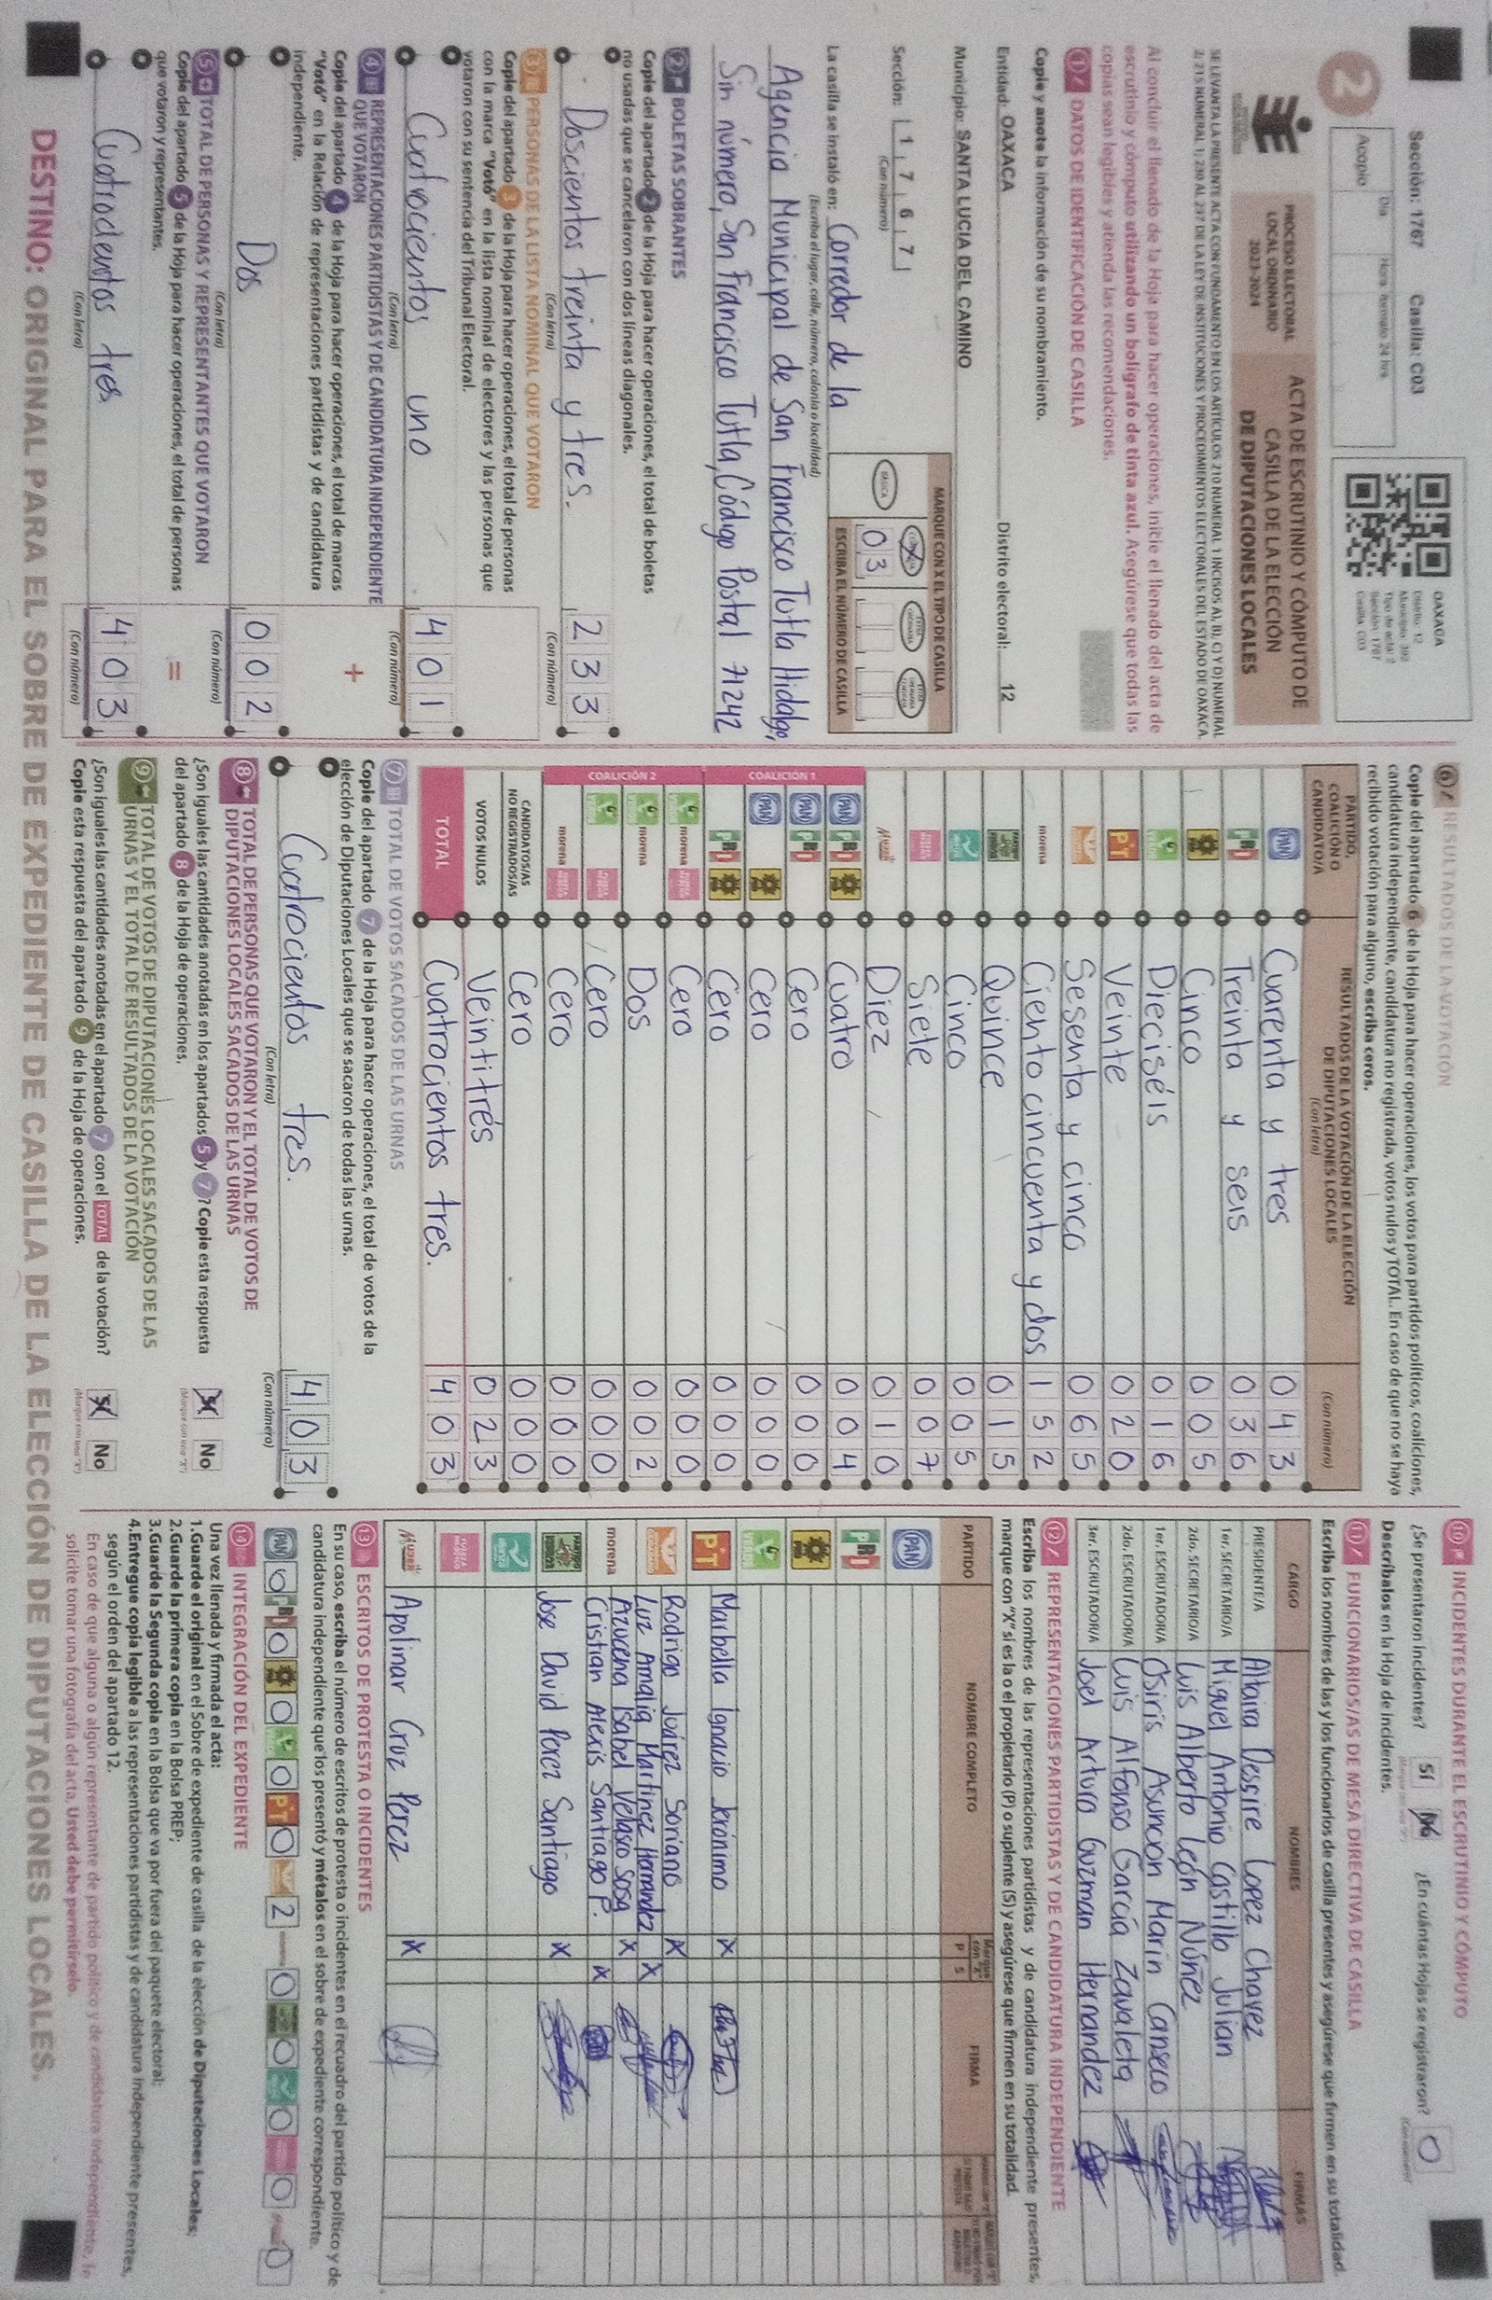 Sección: 1767 Casilla: C03
2
Día Hora formato 24 hrs
Acopio
OAXACA
Distrito: 12
Municipio: 392
Tipo de acta: 2
Sección: 1767
Casilla: C03
PROCESO ELECTORAL
LOCAL ORDINARIO
2023-2024
ACTA DE ESCRUTINIO Y CÓMPUTO DE
CASILLA DE LA ELECCIÓN
DE DIPUTACIONES LOCALES
SE LEVANTA LA PRESENTE ACTA CON FUNDAMENTO EN LOS ARTÍCULOS 210 NUMERAL 1 INCISOS A), B), C) Y D) NUMERAL
2; 215 NUMERAL 1; 230 AL 237 DE LA LEY DE INSTITUCIONES Y PROCEDIMIENTOS ELECTORALES DEL ESTADO DE OAXACA.
Al concluir el llenado de la Hoja para hacer operaciones, inicie el llenado del acta de
escrutinio y cómputo utilizando un bolígrafo de tinta azul. Asegúrese que todas las
copias sean legibles y atienda las recomendaciones.
1 DATOS DE IDENTIFICACIÓN DE CASILLA
Copie y anote la información de su nombramiento.
Entidad: OAXACA Distrito electoral: 12
Municipio: SANTA LUCIA DEL CAMINO
Sección: 1 7 6 7
(Con número)
MARQUE CON X EL TIPO DE CASILLA
BÁSICA
0 3
ESCRIBA EL NÚMERO DE CASILLA
La casilla se instaló en: Corredor de la
(Escriba el lugar, calle, número, colonia o localidad)
Agencia Municipal de San Francisco Tutla Hidalgo,
Sin número, San Francisco Tutla, Código Postal 71242
2 BOLETAS SOBRANTES
Copie del apartado 2 de la Hoja para hacer operaciones, el total de boletas
no usadas que se cancelaron con dos líneas diagonales.
Doscientos treinta y tres. 2 3 3
(Con letra) (Con número)
3 PERSONAS DE LA LISTA NOMINAL QUE VOTARON
Copie del apartado 3 de la Hoja para hacer operaciones, el total de personas
con la marca "Votó" en la lista nominal de electores y las personas que
votaron con su sentencia del Tribunal Electoral.
Cuatrocientos uno 4 0 1
(Con letra) (Con número)
4 REPRESENTACIONES PARTIDISTAS Y DE CANDIDATURA INDEPENDIENTE
QUE VOTARON
+
Copie del apartado 4 de la Hoja para hacer operaciones, el total de marcas
"Votó" en la Relación de representaciones partidistas y de candidatura
independiente.
Dos 0 0 2
(Con letra) (Con número)
5 TOTAL DE PERSONAS Y REPRESENTANTES QUE VOTARON
=
Copie del apartado 5 de la Hoja para hacer operaciones, el total de personas
que votaron y representantes.
Cuatrocientos tres 4 0 3
(Con letra) (Con número)
6 RESULTADOS DE LA VOTACIÓN
Copie del apartado 6 de la Hoja para hacer operaciones, los votos para partidos políticos, coaliciones,
candidatura independiente, candidatura no registrada, votos nulos y TOTAL. En caso de que no se haya
recibido votación para alguno, escriba ceros.
PARTIDO,
COALICIÓN O
CANDIDATO/A
RESULTADOS DE LA VOTACIÓN DE LA ELECCIÓN
DE DIPUTACIONES LOCALES
(Con letra) (Con número)
PAN Cuarenta y tres 0 4 3
PRI Treinta y seis 0 3 6
PRD Cinco 0 0 5
VERDE Dieciséis 0 1 6
PT Veinte 0 2 0
Sesenta y cinco 0 6 5
morena Ciento cincuenta y dos 1 5 2
Quince 0 1 5
Cinco 0 0 5
Siete 0 0 7
MUJER Diez 0 1 0
COALICIÓN 1
PAN PRI PRD Cuatro 0 0 4
PAN PRI Cero 0 0 0
PAN PRD Cero 0 0 0
PRI PRD Cero 0 0 0
COALICIÓN 2
VERDE morena Cero 0 0 0
VERDE morena Dos 0 0 2
VERDE Cero 0 0 0
morena Cero 0 0 0
CANDIDATOS/AS
NO REGISTRADOS/AS Cero 0 0 0
VOTOS NULOS Veintitrés 0 2 3
TOTAL Cuatrocientos tres. 4 0 3
7 TOTAL DE VOTOS SACADOS DE LAS URNAS
Copie del apartado 7 de la Hoja para hacer operaciones, el total de votos de la
elección de Diputaciones Locales que se sacaron de todas las urnas.
Cuatrocientos tres. 4 0 3
(Con letra) (Con número)
8 TOTAL DE PERSONAS QUE VOTARON Y EL TOTAL DE VOTOS DE
DIPUTACIONES LOCALES SACADOS DE LAS URNAS
¿Son iguales las cantidades anotadas en los apartados 5 y 7? Copie esta respuesta
del apartado 8 de la Hoja de operaciones.
Sí No
(Marque con una "X")
9 TOTAL DE VOTOS DE DIPUTACIONES LOCALES SACADOS DE LAS
URNAS Y EL TOTAL DE RESULTADOS DE LA VOTACIÓN
¿Son iguales las cantidades anotadas en el apartado 7 con el TOTAL de la votación?
Copie esta respuesta del apartado 9 de la Hoja de operaciones.
Sí No
(Marque con una "X")
10 INCIDENTES DURANTE EL ESCRUTINIO Y CÓMPUTO
¿Se presentaron incidentes? Sí No ¿En cuántas Hojas se registraron? 0
(Marque con una "X") (Con número)
Descríbalos en la Hoja de incidentes.
11 FUNCIONARIOS/AS DE MESA DIRECTIVA DE CASILLA
Escriba los nombres de las y los funcionarios de casilla presentes y asegúrese que firmen en su totalidad.
CARGO NOMBRES FIRMAS
PRESIDENTE/A Altaira Desire Lopez Chavez
1er. SECRETARIO/A Miguel Antonio Castillo Julian
2do. SECRETARIO/A Luis Alberto León Núñez
1er. ESCRUTADOR/A Osiris Asuncion Marin Canseco
2do. ESCRUTADOR/A Luis Alfonso García Zavaleta
3er. ESCRUTADOR/A Joel Arturo Guzman Hernandez
12 REPRESENTACIONES PARTIDISTAS Y DE CANDIDATURA INDEPENDIENTE
Escriba los nombres de las representaciones partidistas y de candidatura independiente presentes,
marque con "X" si es la o el propietario (P) o suplente (S) y asegúrese que firmen en su totalidad.
PARTIDO NOMBRE COMPLETO P S FIRMA
PAN
PRI
PRD
VERDE
PT Marbella Ignacio Jerónimo X
Rodrigo Joárez Soriano X
Luz Amalia Martinez Hernandez X
morena Azucena Isabel Velasco Sosa X
Cristian Alexis Santiago P. X
Jose David Perez Santiago X
MUJER Apolinar Cruz Perez X
13 ESCRITOS DE PROTESTA O INCIDENTES
En su caso, escriba el número de escritos de protesta o incidentes en el recuadro del partido político y de
candidatura independiente que los presentó y métalos en el sobre de expediente correspondiente.
PAN 0 PRI 0 PRD 0 VERDE 0 PT 0 2 morena 0 0 0 0 0
14 INTEGRACIÓN DEL EXPEDIENTE
Una vez llenada y firmada el acta:
1.Guarde el original en el Sobre de expediente de casilla de la elección de Diputaciones Locales;
2.Guarde la primera copia en la Bolsa PREP;
3.Guarde la Segunda copia en la Bolsa que va por fuera del paquete electoral;
4.Entregue copia legible a las representaciones partidistas y de candidatura independiente presentes,
según el orden del apartado 12.
En caso de que alguna o algún representante de partido político y de candidatura independiente, le
solicite tomar una fotografía del acta, Usted debe permitírselo.
DESTINO: ORIGINAL PARA EL SOBRE DE EXPEDIENTE DE CASILLA DE LA ELECCIÓN DE DIPUTACIONES LOCALES.